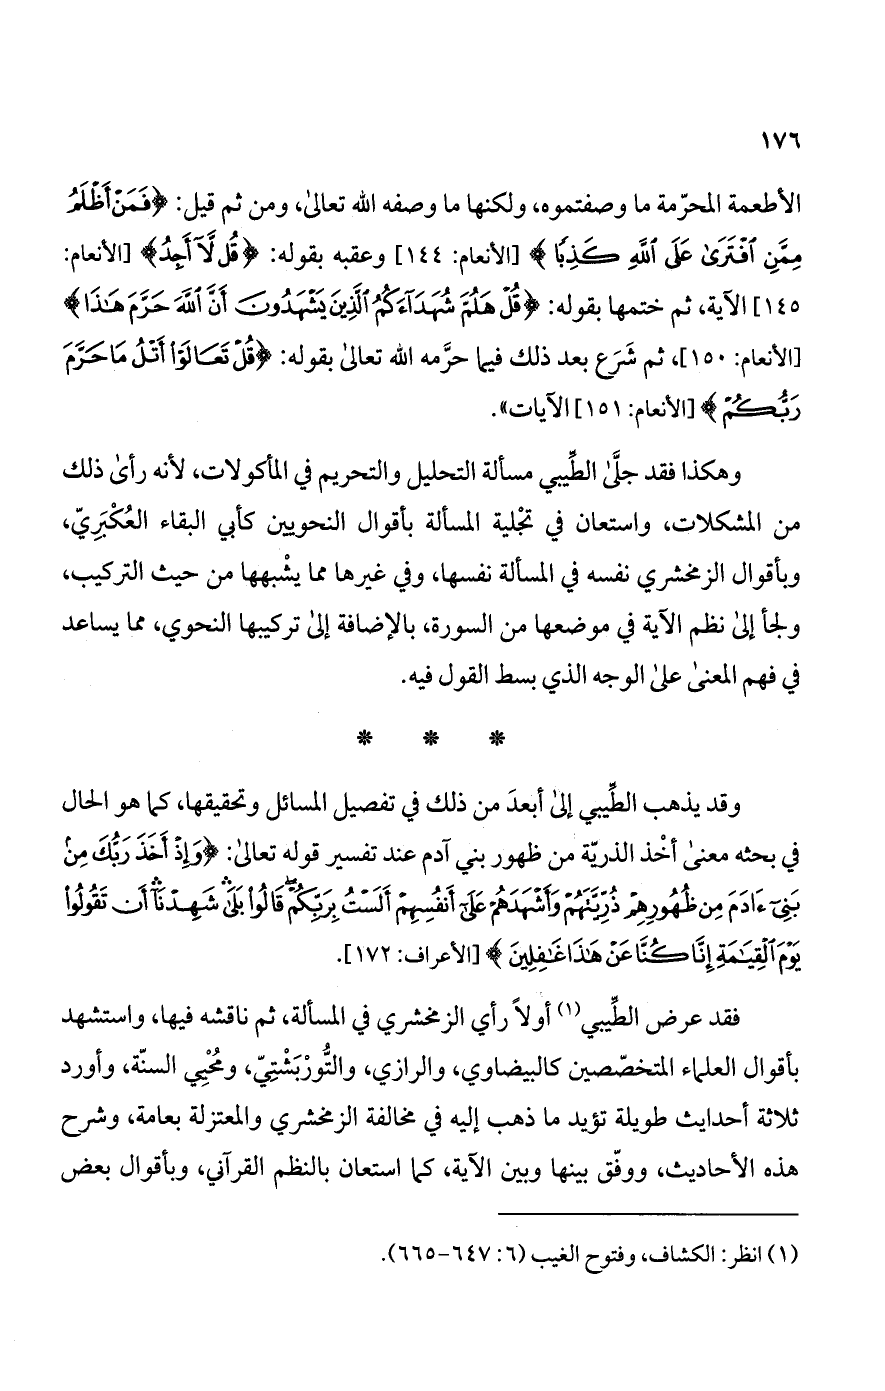 ١٧٦
الأطعمة المحرّمة ما وصفتموه، ولكنها ما وصفه الله تعالىٰ، ومن ثم قيل: ﴿فَمَنْ أَظْلَمُ
مِمَّنِ ٱفْتَرَىٰ عَلَى ٱللَّهِ كَذِبًا﴾ [الأنعام: ١٤٤] وعقبه بقوله: ﴿قُل لَّآ أَجِدُ﴾ [الأنعام:
١٤٥] الآية، ثم ختمها بقوله: ﴿قُلْ هَلُمَّ شُهَدَآءَكُمُ ٱلَّذِينَ يَشْهَدُونَ أَنَّ ٱللَّهَ حَرَّمَ هَـٰذَا﴾
[الأنعام: ١٥٠]، ثم شَرَع بعد ذلك فيما حرَّمه الله تعالىٰ بقوله: ﴿قُلْ تَعَالَوْا۟ أَتْلُ مَا حَرَّمَ
رَبُّكُمْ﴾ [الأنعام: ١٥١] الآيات».
وهكذا فقد جلَّىٰ الطِّيبي مسألة التحليل والتحريم في المأكولات، لأنه رأىٰ ذلك
من المشكلات، واستعان في تجْلية المسألة بأقوال النحويين كأبي البقاء العُكْبَرِيّ،
وبأقوال الزمخشري نفسه في المسألة نفسها، وفي غيرها مما يشْبهها من حيث التركيب،
ولجأ إلىٰ نظم الآية في موضعها من السورة، بالإضافة إلىٰ تركيبها النحوي، مما يساعد
في فهم المعنىٰ علىٰ الوجه الذي بسط القول فيه.
* * *
وقد يذهب الطِّيبي إلىٰ أبعدَ من ذلك في تفصيل المسائل وتحقيقها، كما هو الحال
في بحثه معنىٰ أخْذ الذريّة من ظهور بني آدم عند تفسير قوله تعالىٰ: ﴿وَإِذْ أَخَذَ رَبُّكَ مِنۢ
بَنِىٓ ءَادَمَ مِن ظُهُورِهِمْ ذُرِّيَّتَهُمْ وَأَشْهَدَهُمْ عَلَىٰٓ أَنفُسِهِمْ أَلَسْتُ بِرَبِّكُمْ ۖ قَالُوا۟ بَلَىٰ ۛ شَهِدْنَآ ۛ أَن تَقُولُوا۟
يَوْمَ ٱلْقِيَـٰمَةِ إِنَّا كُنَّا عَنْ هَـٰذَا غَـٰفِلِينَ﴾ [الأعراف: ١٧٢].
فقد عرض الطِّيبي(١) أولاً رأي الزمخشري في المسألة، ثم ناقشه فيها، واستشهد
بأقوال العلماء المتخصّصين كالبيضاوي، والرازي، والتُّورْبَشْتِيّ، ومُحْيِي السنّة، وأورد
ثلاثة أحدايث طويلة تؤيد ما ذهب إليه في مخالفة الزمخشري والمعتزلة بعامة، وشرح
هذه الأحاديث، ووفّق بينها وبين الآية، كما استعان بالنظم القرآني، وبأقوال بعض
(١) انظر: الكشاف، وفتوح الغيب (٦: ٦٤٧-٦٦٥).